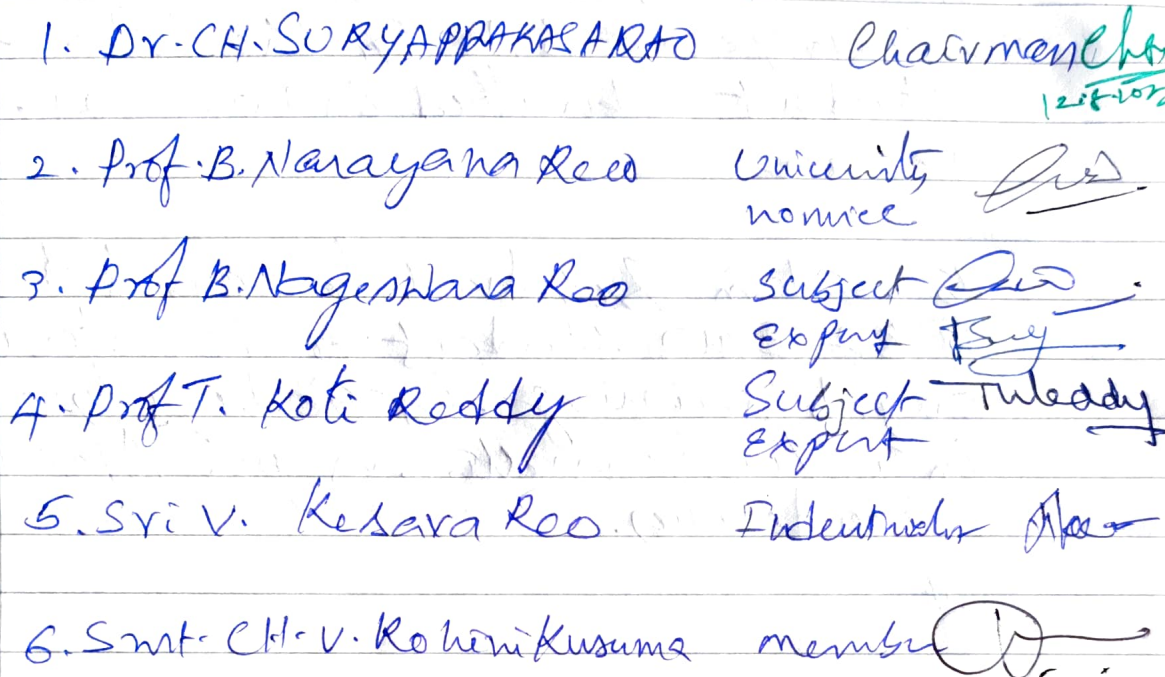 1. Dr. CH. SURYAPPRAKASARAO Chairman
2. Prof. B. Narayana Rao University
nomiee
3. Prof B. Nageswara Rao Subject
Expert
4. Prof T. Koti Reddy Subject
Expert
5. Sri V. Kesava Rao
6. Smt. CH. V. Rohini Kusuma member